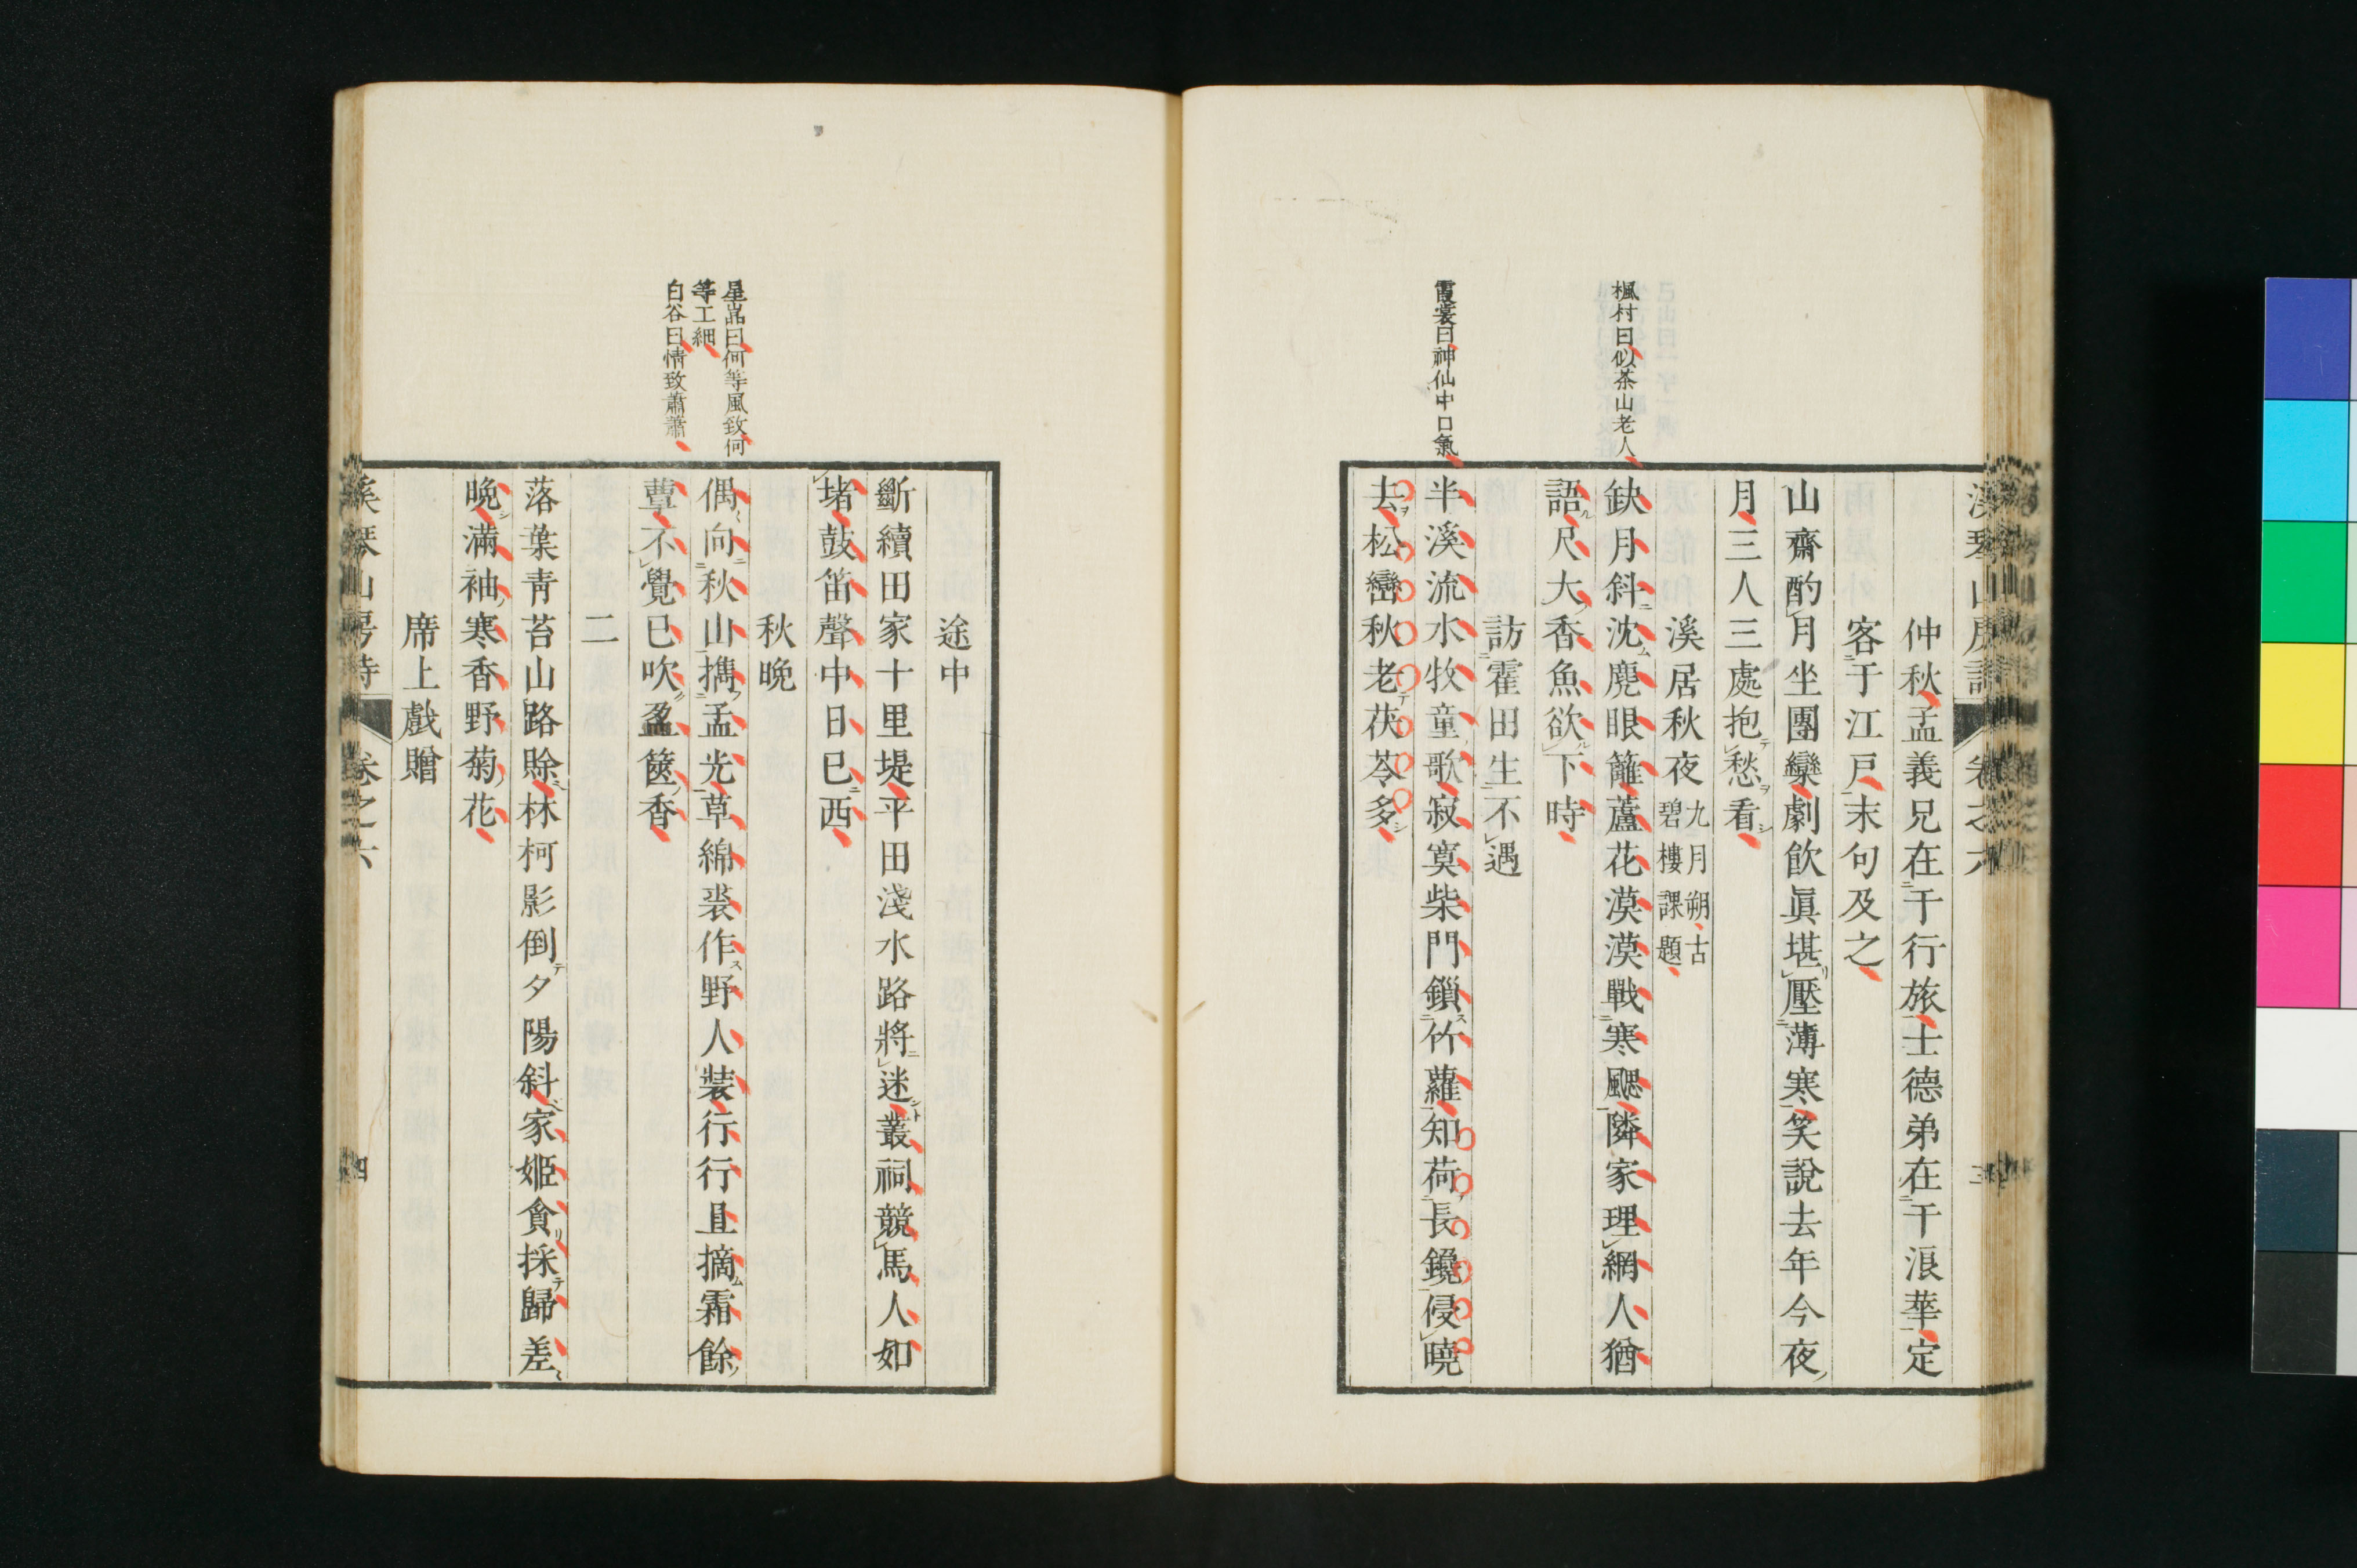 楓村曰似茶山老人
霞裳曰神仙中口氣
溪琴山房詩 卷之六
仲秋孟義兄在于行旅士德弟在于浪華定
客于江戸末句及之
山齋酌月坐團欒劇飲眞堪壓薄寒笑說去年今夜
月三人三處抱愁看
溪居秋夜 九月朔古碧樓課題
缺月斜沈麂眼籬蘆花漠漠戰寒颸隣家理網人猶
語尺大香魚欲下時
訪霍田生不遇
半溪流水牧童歌寂寞柴門鎖竹蘿知荷長鑱侵曉
去松巒秋老茯苓多
星喦曰何等風致何
等工細
白谷曰情致蕭蕭
途中
斷續田家十里堤平田淺水路將迷叢祠競馬人如
堵鼓笛聲中日已西
秋晩
偶向秋山攜孟光草綿裘作野人裝行行且摘霜餘
蕈不覺已吹盈篋香
二
落葉靑苔山路賖林柯影倒夕陽斜家姬貪採歸差
晩滿袖寒香野菊花
席上戲贈
溪琴山房詩 卷之六 四